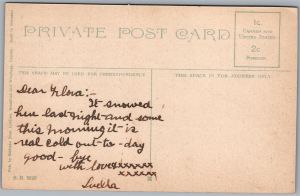 PRIVATE POST CARD
1c.
CANADA AND
UNITED STATES
2c
FOREIGN
THIS SPACE MAY BE USED FOR MESSAGE
THIS SPACE IS FOR ADDRESS ONLY.
Dear Velna:-
It snowed
here last night and some
this morning it is
real cold out-to-day
good-bye
with love xxxxxx
xxxxxxx